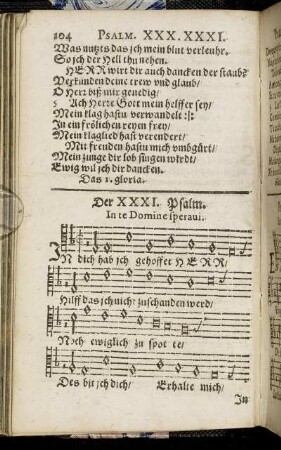 104 PSALM. XXX. XXXI.
Was nutzts das jch mein blut verleuhr.
So jch der Hell thu nehen.
HERR wirt dir auch dancken der staub?
Verkunden deine trew vnd glaub/
O Herr biß mir genedig/
5 Ach Herre Gott mein helffer sey/
Mein klag hastu verwandelt :|:
In ein frölichen reyen frey/
Mein klaglied hast verendert/
Mit freuden hastu mich vmbgürt/
Mein zunge dir lob singen würdt/
Ewig wil jch dir dancken.
Das 1. gloria.
Der XXXI. Psalm.
In te Domine speraui.
IN dich hab jch gehoffet HERR/
Hilff das jch nicht zuschanden werd/
Noch ewiglich zu spotte/
Des bit jch dich/ Erhalte mich/
In